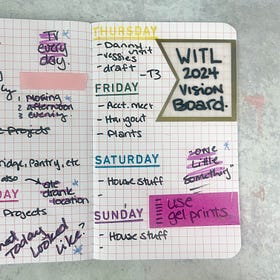 TV
every
day.
1 morning
2 afternoon
3 evening
Projects
ridge, Pantry, etc
also
ate
drank
location
DAY
Projects
Today
Looked
Like?
THURSDAY
- Danny until
- veggies
- draft
-T3
FRIDAY
- Acct. meet
- Hangout
- Plants
SATURDAY
- House stuff
SUNDAY
- House stuff
WITL
2024
Vision
Board.
"one
Little
Something"
use
gel prints.